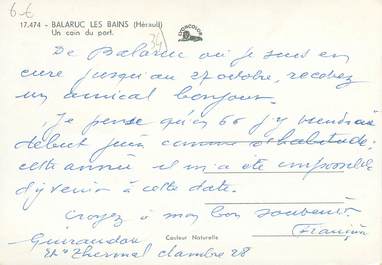 6 €
17.474 - BALARUC LES BAINS (Hérault)
Un coin du port.
34
LYONCOLOR
De Balaruc où je suis en
cure jusqu'au 27 octobre, recevez
un amical bonjour.
Je pense qu'en 66 j'y viendrai
début juin comme d'habitude;
cette année il m'a été impossible
d'y venir à cette date.
Croyez à mon bon souvenir.
Guiraudou
Couleur Naturelle
Ets Thermal chambre 28